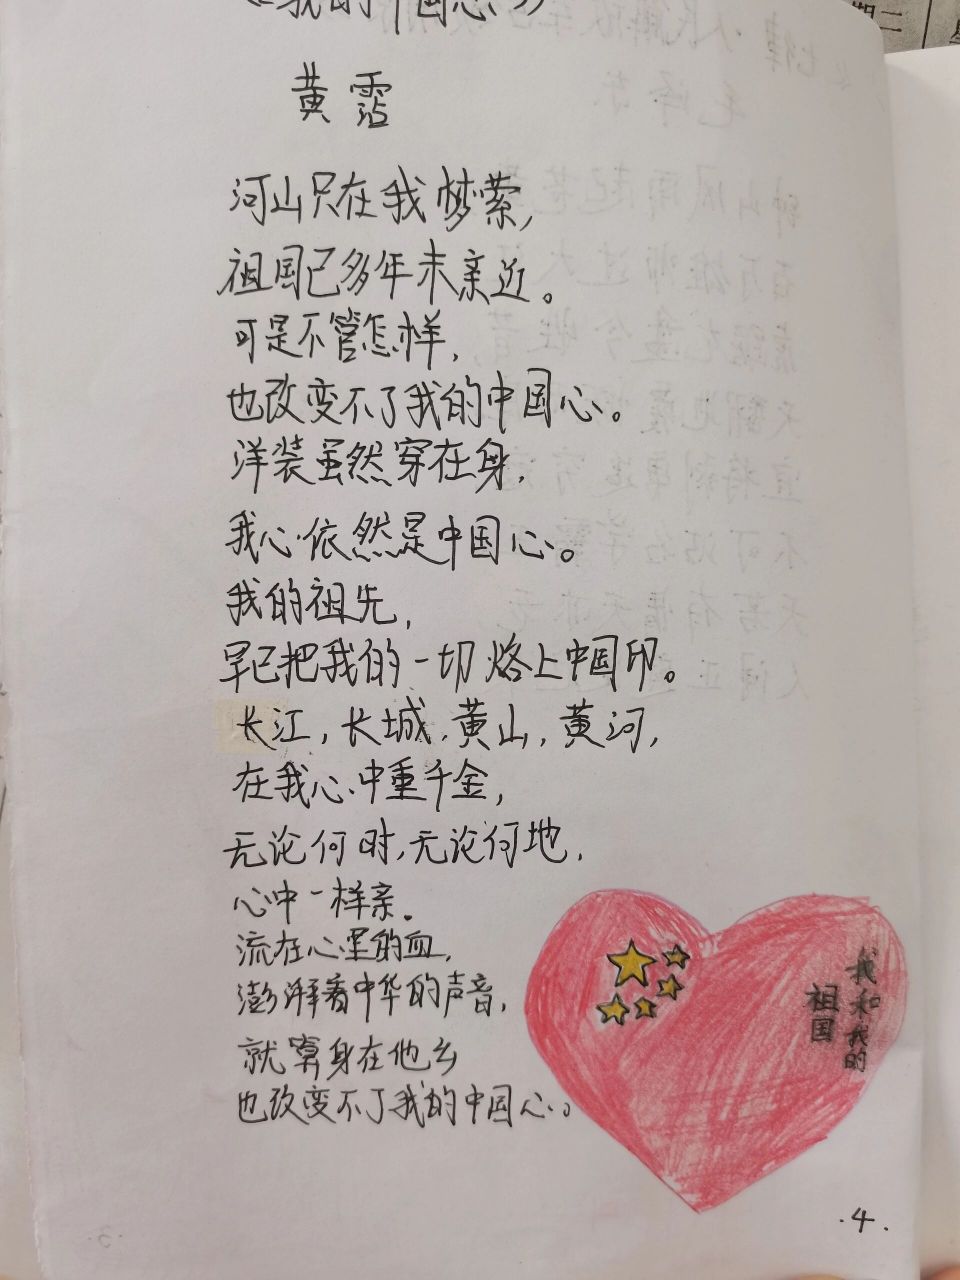 《我的中国心》
黄霑
河山只在我梦萦，
祖国已多年未亲近。
可是不管怎样，
也改变不了我的中国心。
洋装虽然穿在身，
我心依然是中国心。
我的祖先，
早已把我的一切烙上中国印。
长江，长城，黄山，黄河，
在我心中重千金，
无论何时，无论何地，
心中一样亲。
流在心里的血，
澎湃着中华的声音，
就算身在他乡
也改变不了我的中国心。
我和我的
祖国
·4·